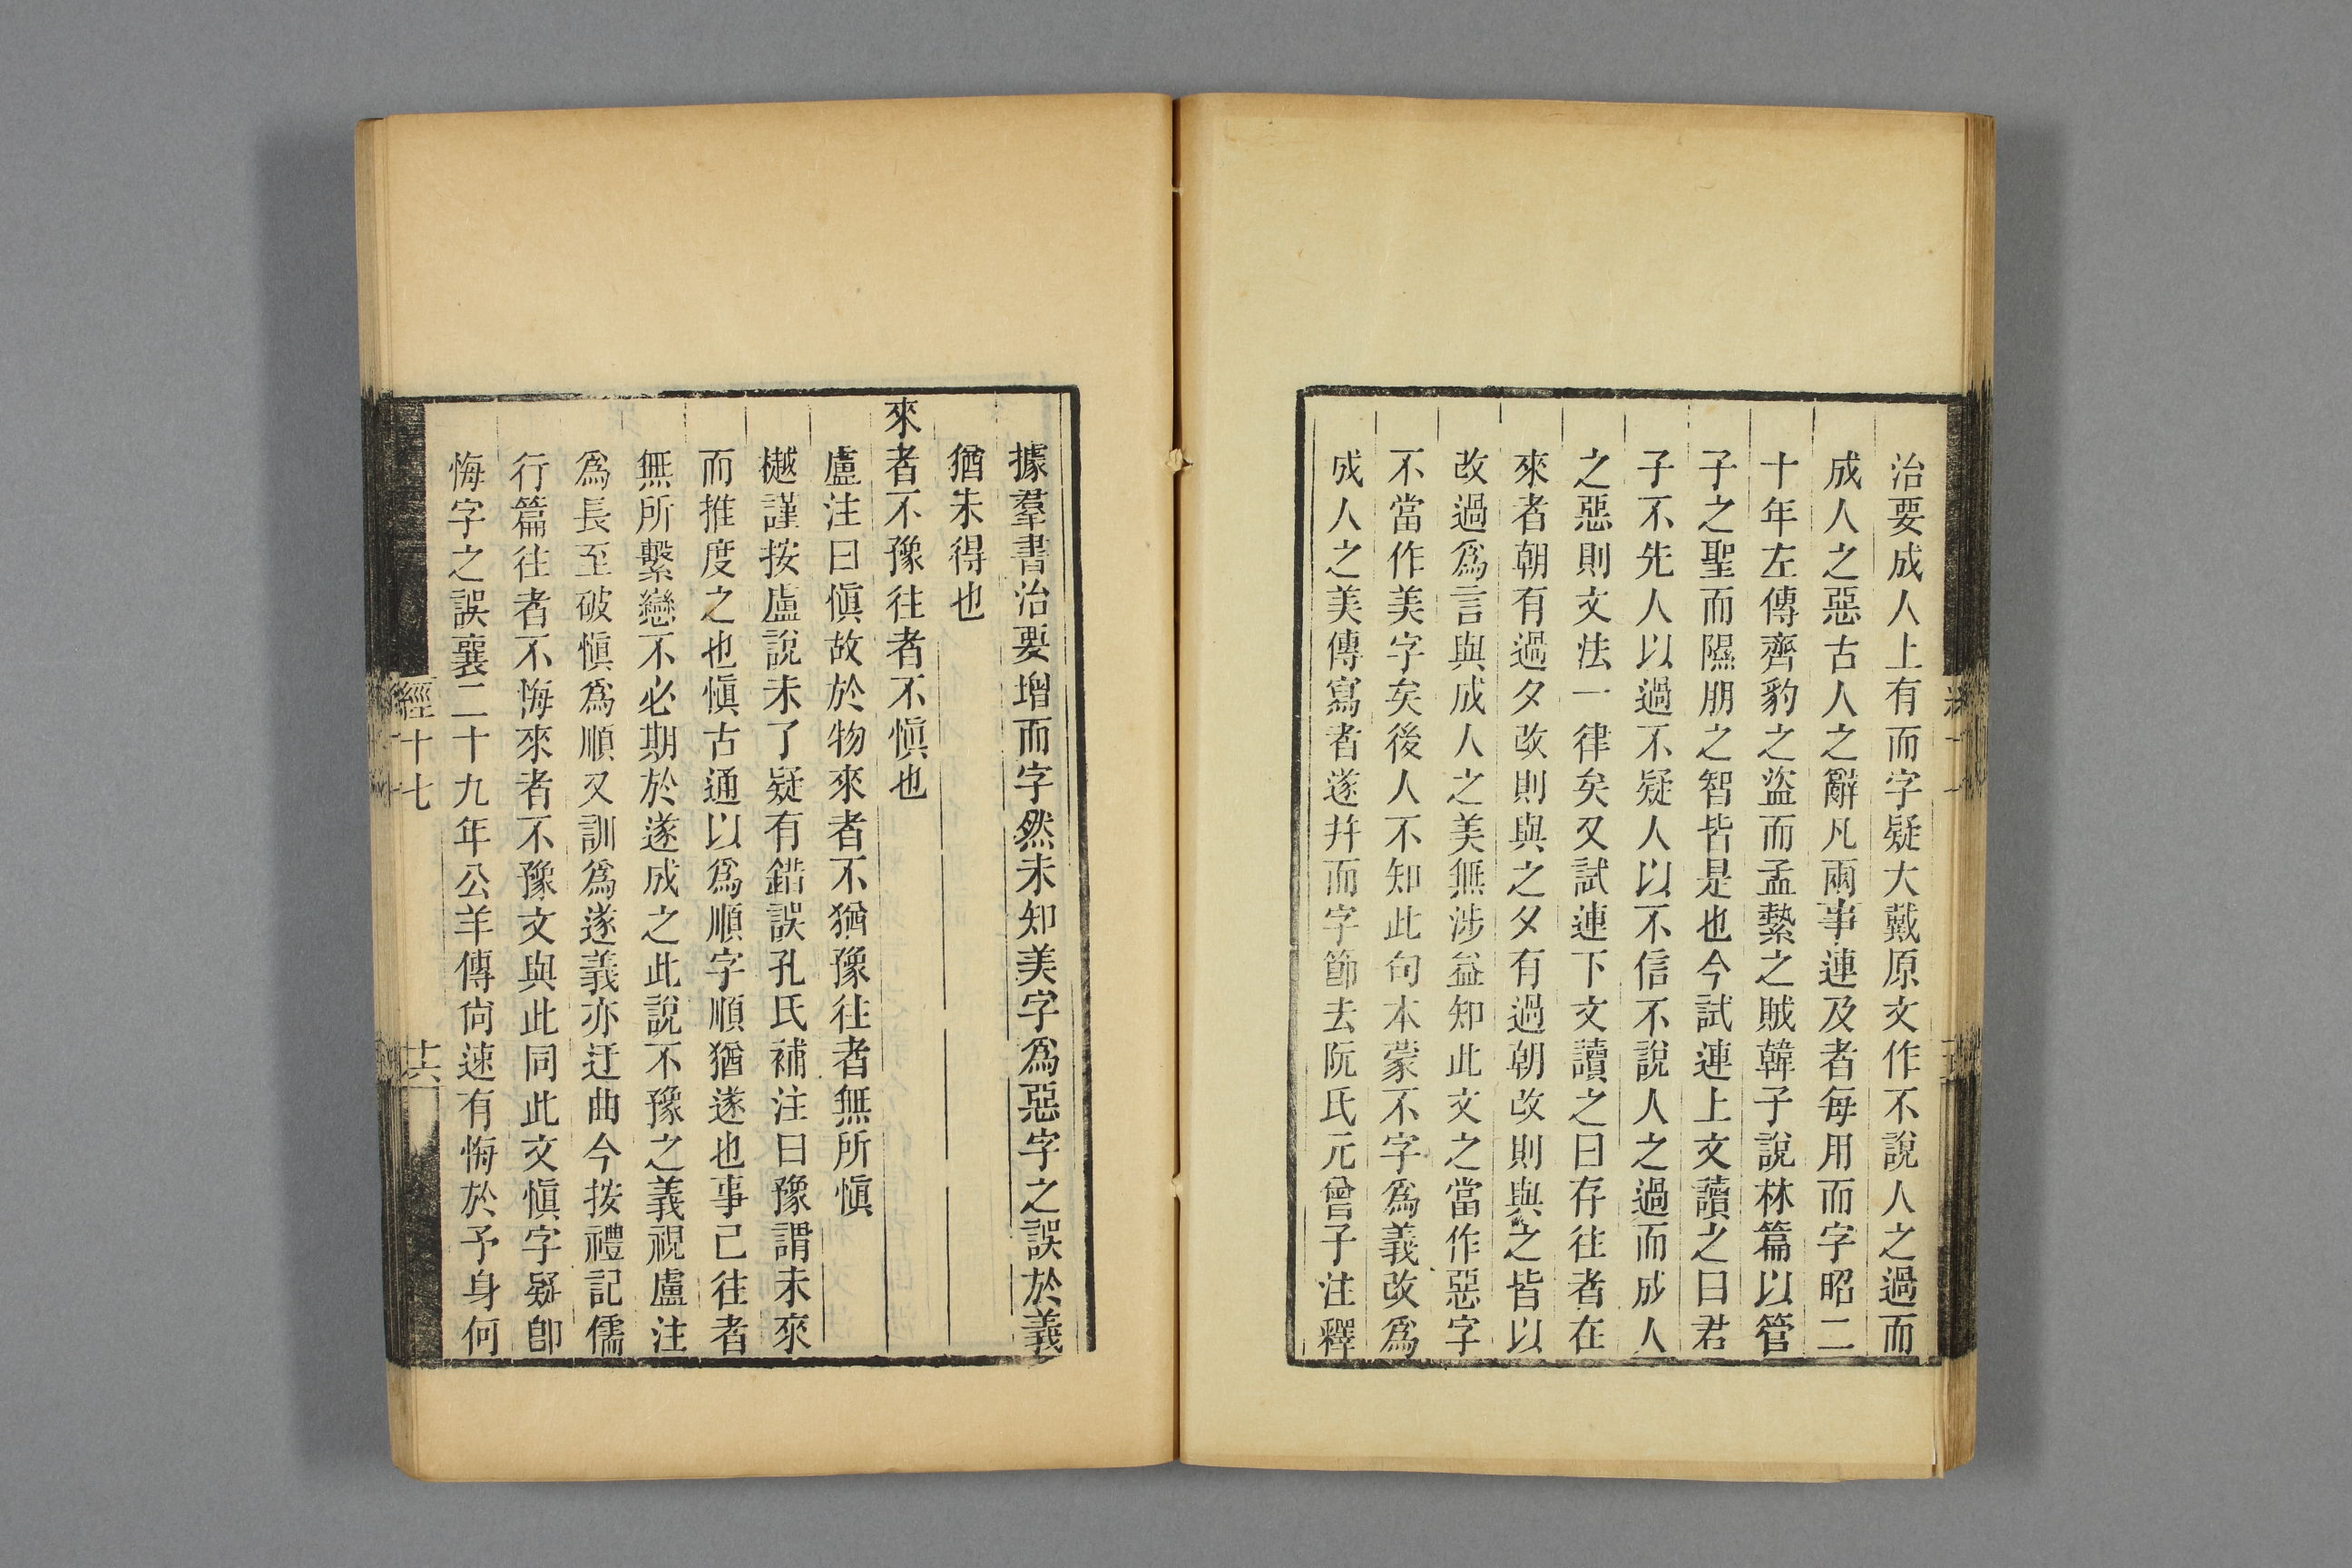 治要成人上有而字疑大戴原文作不說人之過而
成人之惡古人之辭凡兩事連及者每用而字昭二
十年左傳齊豹之盜而孟縶之賊韓子說林篇以管
子之聖而隰朋之智皆是也今試連上文讀之曰君
子不先人以過不疑人以不信不說人之過而成人
之惡則文法一律矣又試連下文讀之曰存往者在
來者朝有過夕改則與之夕有過朝改則與之皆以
改過爲言與成人之美無涉益知此文之當作惡字
不當作美字矣後人不知此句本蒙不字爲義改爲
成人之美傳寫者遂幷而字節去阮氏元曾子注釋
據羣書治要增而字然未知美字爲惡字之誤於義
猶未得也
來者不豫往者不愼也
盧注曰愼故於物來者不猶豫往者無所愼
樾謹按盧說未了疑有錯誤孔氏補注曰豫謂未來
而推度之也愼古通以爲順字順猶遂也事己往者
無所繫戀不必期於遂成之此說不豫之義視盧注
爲長至破愼爲順又訓爲遂義亦迂曲今按禮記儒
行篇往者不悔來者不豫文與此同此文愼字疑卽
悔字之誤襄二十九年公羊傳尙速有悔於予身何
經十七
廿六